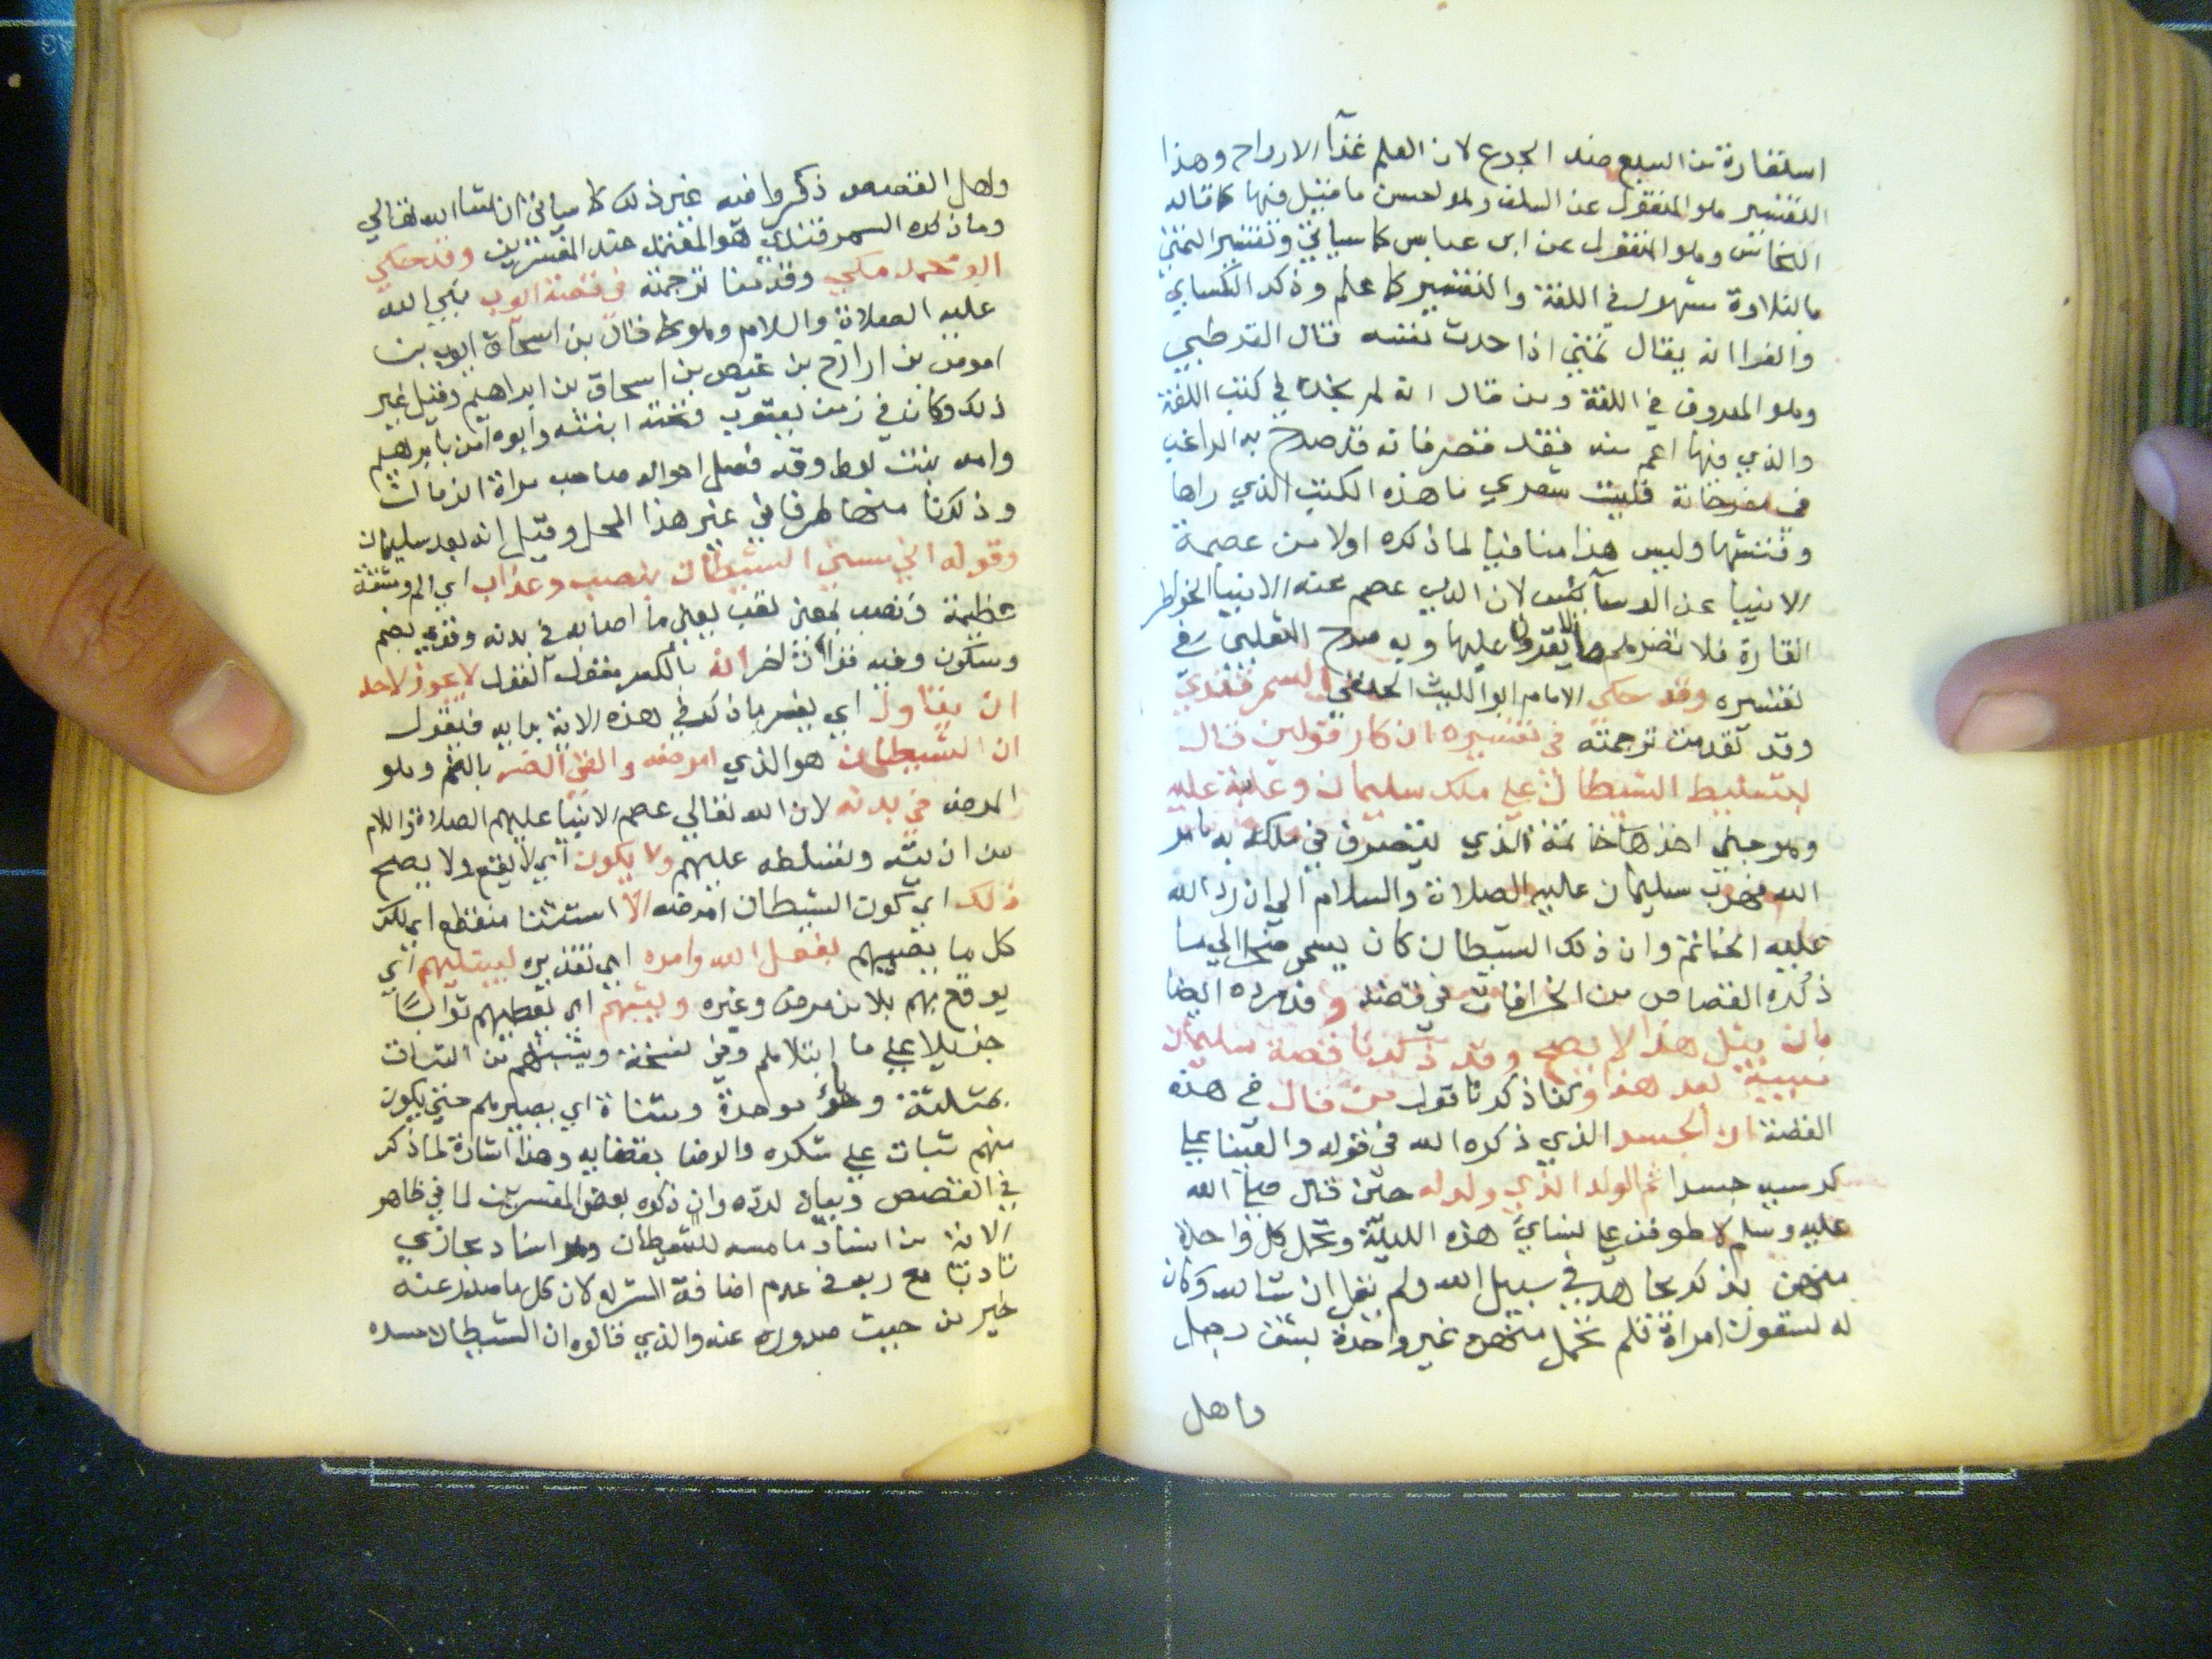 استعارة من السبع ضد الجوع لان العلم غذآ الارواح وهذا
التفسير هو المنقول عن السلف وهو احسن ما قيل فيها كما قاله
النحاس وهو المنقول عن ابن عباس كما سياتي وتفسير التمني
بالتلاوة مشهور في اللغة والتفسير كما علم وذكر الكساي
والفرا انه يقال تمني اذا حدث نفسه قال القرطبي
وهو المعروف في اللغة ومن قال انه لم يجده في كتب اللغة
والذي فيها اعم منه فقد قصر فانه قد صرح به الراغب
في مفرداته فليت شعري ما هذه الكتب الذي راها
وفتشها وليس هذا منافيا لما ذكره اولا من عصمة
الانبيا عن الوسآوس لان الذي عصم عنه الانبيا الخواطر
القارة فلا تضرهم ولا يقرون عليها وبه صرح الثعلبي في
تفسيره وقد حكي الامام ابو الليث الحنفي السمرقندي
وقد تقدمت ترجمته في تفسيره انكار قول من قال
بتسليط الشيطان علي ملك سليمان وغلبة عليه
وهو جني اخذ خاتمه الذي يتصرف في ملكه به بامر
الله فهرب سليمان عليه الصلاة والسلام الي ان رد الله
عليه الخاتم وان ذلك الشيطان كان يسمي صخرا الي ما
ذكره القصاص من الخرافات في قصته وقد رده ايضا
بان مثل هذا لا يصح وقد ذكرنا قصة سليمان
مبينة بعد هذا وكذا ذكرنا قول من قال في هذه
القصة ان الجسد الذي ذكره الله في قوله والقينا علي
كرسيه جسدا ثم الولد الذي ولد له حين قال صلي الله
عليه وسلم لاطوفن علي نساي هذه الليلة وتحمل كل واحدة
منهن بذكر يجاهد في سبيل الله ولم يقل ان شا الله وكان
له تسعون امراة فلم تحمل منهن غير واحدة بشق رجل
واهل
واهل القصص ذكروا فيه غير ذلك كما سياتي ان شا الله تعالي
وما ذكره السمرقندي هو المعتمد عند المفسرين وقد حكي
ابو محمد مكي وقدمنا ترجمته في قصة ايوب نبي الله
عليه الصلاة والسلام وهو كما قال بن اسحاق ايوب بن
اموص بن ارازح بن عيص بن اسحاق بن ابراهيم وقيل غير
ذلك وكان في زمن يعقوب وتحته ابنته وابوه امن بابراهيم
وامه بنت لوط وقد فصل احواله صاحب مراة الزمان
وذكرنا منها طرفا في غير هذا المحل وقيل انه بعد سليمان
وقوله اني مسني الشيطان بنصب وعذاب اي الم ومشقة
عظيمة ونصب بمعني تعب يعني ما اصابه في بدنه وقري بضم
وسكون وفيه قراآت اخر انه بالكسر مقول القول لا يجوز لاحد
ان يتاول اي يفسر ما ذكر في هذه الاية برايه فيقول
ان الشيطان هو الذي امرضه والقي الضر بالضم وهو
المرض في بدنه لان الله تعالي عصم الانبيا عليهم الصلاة والسلام
من ان يمسه وتسلطه عليهم ولا يكون اي لا يقع ولا يصح
ذلك اي كون الشيطان امرضه الا استثنا منقطع اي لكن
كل ما يصيبهم بفعل الله وامره اي تقديره ليبتليهم اي
يوقع بهم بلا من مرض وغيره ويثيبهم اي يعطيهم ثوابا
جزيلا علي ما ابتلاهم وفي نسخة ويثبتهم من الثبات
بمثلثة وبا موحدة ومثناة اي يصيرهم حتي يكون
منهم ثبات علي شكره والرضا بقضايه وهذا اشارة لما ذكر
في القصص وبيان لرده وان ذكره بعض المفسرين لما في ظاهر
الاية من اسناد ما مسه للشيطان وهو اسناد مجازي
تادبا مع ربه في عدم اضافة الشر له لان كل ما صدر عنه
خير من حيث صدوره عنه والذي قالوه ان الشيطان حسده